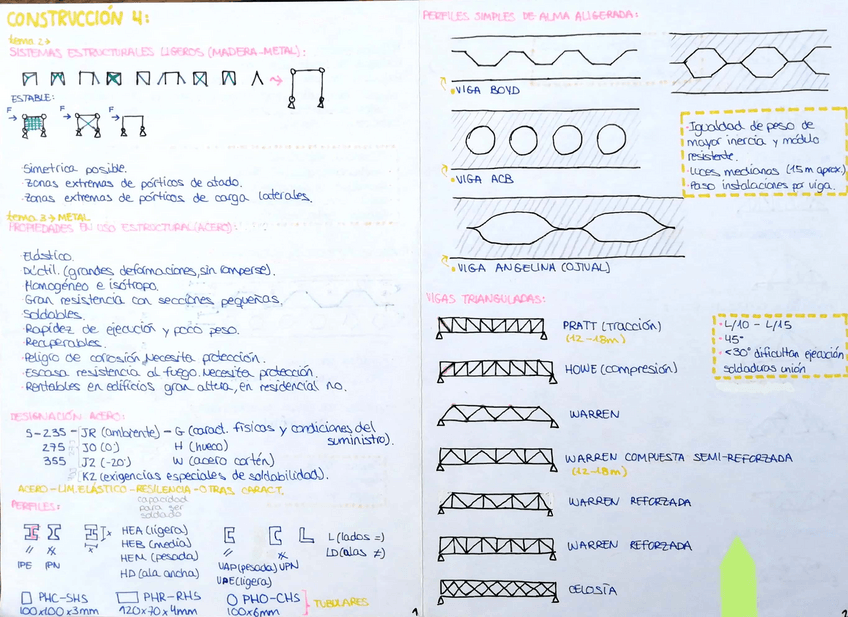 CONSTRUCCIÓN 4:
tema 2→
SISTEMAS ESTRUCTURALES LIGEROS (MADERA-METAL):
ESTABLE:
F F F
·Simetrica posible.
·Zonas extremas de pórticos de atado.
·Zonas extremas de pórticos de carga laterales.
tema 3→METAL
PROPIEDADES EN USO ESTRUCTURAL (ACERO):
·Elástico.
·Dúctil. (grandes deformaciones, sin romperse).
·Homogéneo e isótropo.
·Gran resistencia con secciones pequeñas.
·Soldables.
·Rapidez de ejecución y poco peso.
·Recuperables.
·Peligro de corosión. Necesita protección.
·Escasa resistencia al fuego. Necesita protección.
·Rentables en edificios gran altura, en residencial no.
DESIGNACIÓN ACERO:
S-235 - JR (ambiente) - G (caract. físicas y condiciones del suministro).
275 J0 (0°) H (hueco)
355 J2 (-20°) W (acero cortén)
K2 (exigencias especiales de soldabilidad).
ACERO - LIM. ELÁSTICO - RESILENCIA - OTRAS CARACT.
capacidad
para ser
soldado
PERFILES:
IPE IPN
HEA (ligera)
HEB (media)
HEM (pesada)
HD (ala ancha)
UAP (pesada) UPN
UPE (ligera)
L (lados =)
LD (alas ≠)
PHC-SHS
100x100x3mm
PHR-RHS
120x70x4mm
PHO-CHS
100x6mm
TUBULARES
1
PERFILES SIMPLES DE ALMA ALIGERADA:
VIGA BOYD
VIGA ACB
VIGA ANGELINA (OJIVAL)
·Igualdad de peso de
mayor inercia y módulo
resistente.
·Luces medianas (15m aprox.)
·Paso instalaciones por viga.
VIGAS TRIANGULADAS:
PRATT (tracción)
(12-18m)
HOWE (compresión)
WARREN
WARREN COMPUESTA SEMI-REFORZADA
(12-18m)
WARREN REFORZADA
WARREN REFORZADA
CELOSÍA
·L/10 - L/15
·45°
·<30° dificultan ejecución
soldaduras unión
2